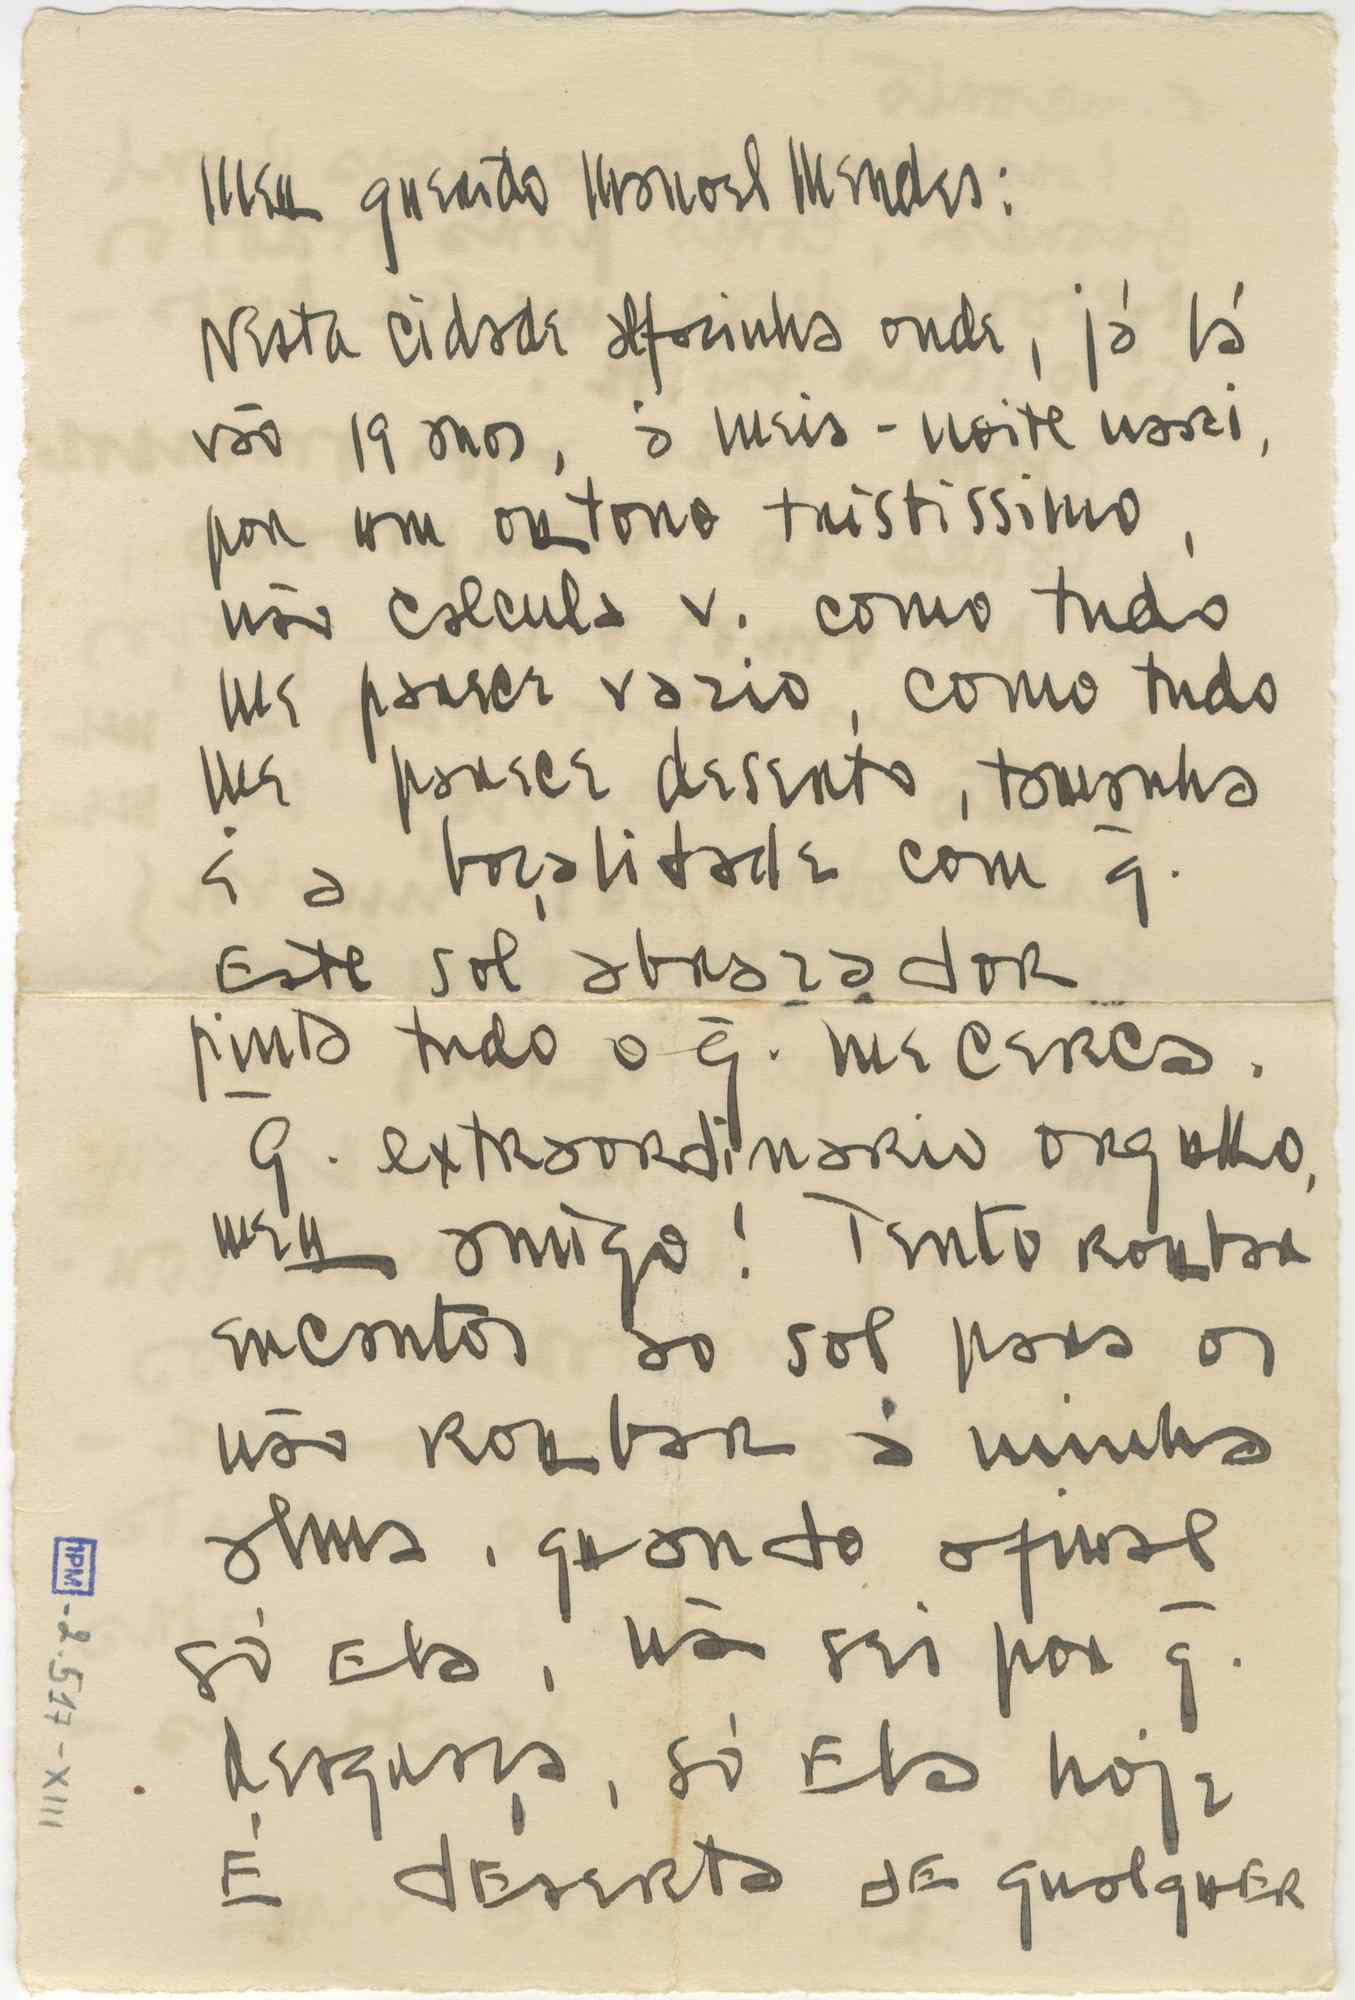 Meu querido Manoel Mendes:
Nesta cidade alfacinha onde, já lá
vão 19 anos, á meia-noite nasci,
por um outono tristissimo,
não calcula v. como tudo
me parece vazio, como tudo
me parece deserto, tamanha
é a boçalidade com q̄.
Este sol abrazador
pinta tudo o q̄. me cerca.
Q. extraordinario orgulho,
meu amigo! Tento roubar
encantos ao sol para os
não roubar á minha
alma, quando afinal
só Ela, não sei por q̄.
desgraça, só Ela hoje
É deserta de qualquer
MPM -2.517-XIII